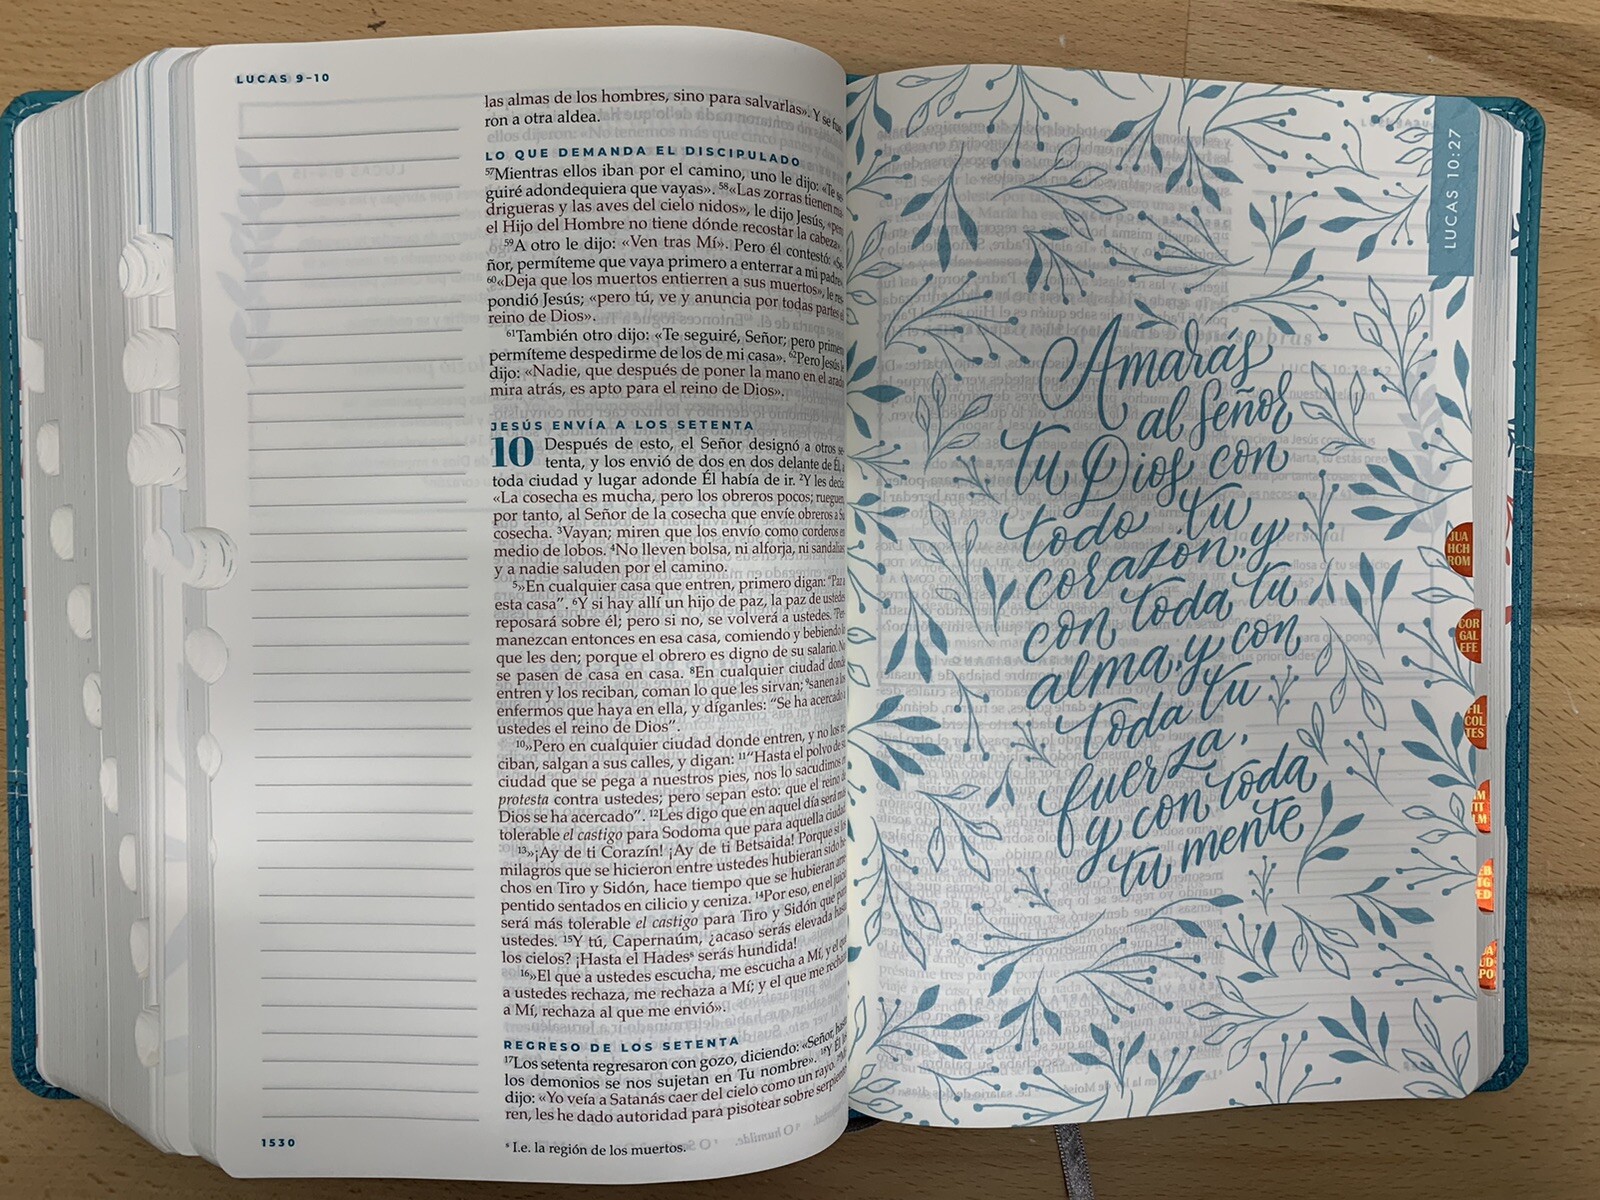 LUCAS 9–10
las almas de los hombres, sino para salvarlas». Y se fue-
ron a otra aldea.
LO QUE DEMANDA EL DISCIPULADO
57Mientras ellos iban por el camino, uno le dijo: «Te se-
guiré adondequiera que vayas». 58«Las zorras tienen ma-
drigueras y las aves del cielo nidos», le dijo Jesús, «pero
el Hijo del Hombre no tiene dónde recostar la cabeza».
59A otro le dijo: «Ven tras Mí». Pero él contestó: «Se-
ñor, permíteme que vaya primero a enterrar a mi padre».
60«Deja que los muertos entierren a sus muertos», le res-
pondió Jesús; «pero tú, ve y anuncia por todas partes el
reino de Dios».
61También otro dijo: «Te seguiré, Señor; pero primero
permíteme despedirme de los de mi casa». 62Pero Jesús le
dijo: «Nadie, que después de poner la mano en el arado
mira atrás, es apto para el reino de Dios».
JESÚS ENVÍA A LOS SETENTA
10 Después de esto, el Señor designó a otros se-
tenta, y los envió de dos en dos delante de Él, a
toda ciudad y lugar adonde Él había de ir. 2Y les decía:
«La cosecha es mucha, pero los obreros pocos; rueguen,
por tanto, al Señor de la cosecha que envíe obreros a Su
cosecha. 3Vayan; miren que los envío como corderos en
medio de lobos. 4No lleven bolsa, ni alforja, ni sandalias;
y a nadie saluden por el camino.
5»En cualquier casa que entren, primero digan: “Paz a
esta casa”. 6Y si hay allí un hijo de paz, la paz de ustedes
reposará sobre él; pero si no, se volverá a ustedes. 7Per-
manezcan entonces en esa casa, comiendo y bebiendo lo
que les den; porque el obrero es digno de su salario. No
se pasen de casa en casa. 8En cualquier ciudad donde
entren y los reciban, coman lo que les sirvan; 9sanen a los
enfermos que haya en ella, y díganles: “Se ha acercado a
ustedes el reino de Dios”.
10»Pero en cualquier ciudad donde entren, y no los re-
ciban, salgan a sus calles, y digan: 11“Hasta el polvo de su
ciudad que se pega a nuestros pies, nos lo sacudimos en
protesta contra ustedes; pero sepan esto: que el reino de
Dios se ha acercado”. 12Les digo que en aquel día será más
tolerable el castigo para Sodoma que para aquella ciudad.
13»¡Ay de ti Corazín! ¡Ay de ti Betsaida! Porque si los
milagros que se hicieron entre ustedes hubieran sido he-
chos en Tiro y Sidón, hace tiempo que se hubieran arre-
pentido sentados en cilicio y ceniza. 14Por eso, en el juicio
será más tolerable el castigo para Tiro y Sidón que para
ustedes. 15Y tú, Capernaúm, ¿acaso serás elevada hasta
los cielos? ¡Hasta el Hades serás hundida!
16»El que a ustedes escucha, me escucha a Mí, y el que
a ustedes rechaza, me rechaza a Mí; y el que me rechaza
a Mí, rechaza al que me envió».
REGRESO DE LOS SETENTA
17Los setenta regresaron con gozo, diciendo: «Señor, hasta
los demonios se nos sujetan en Tu nombre». 18Y Él les
dijo: «Yo veía a Satanás caer del cielo como un rayo.
ren, les he dado autoridad para pisotear sobre serpientes
I.e. la región de los muertos.
1530
LUCAS 10:27
Amarás
al Señor
tu Dios con
todo tu
corazón, y
con toda tu
alma, y con
toda tu
fuerza,
y con toda
tu mente
JUA
HCH
ROM
COR
GAL
EFE
FIL
COL
TES